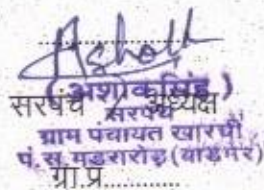 Ashok
(अशोक सिंह)
सरपंच / अध्यक्ष
सरपंच
ग्राम पंचायत खारची
पं.स. मडरारोड़ (वाडमेर)
ग्रा.प्र..............